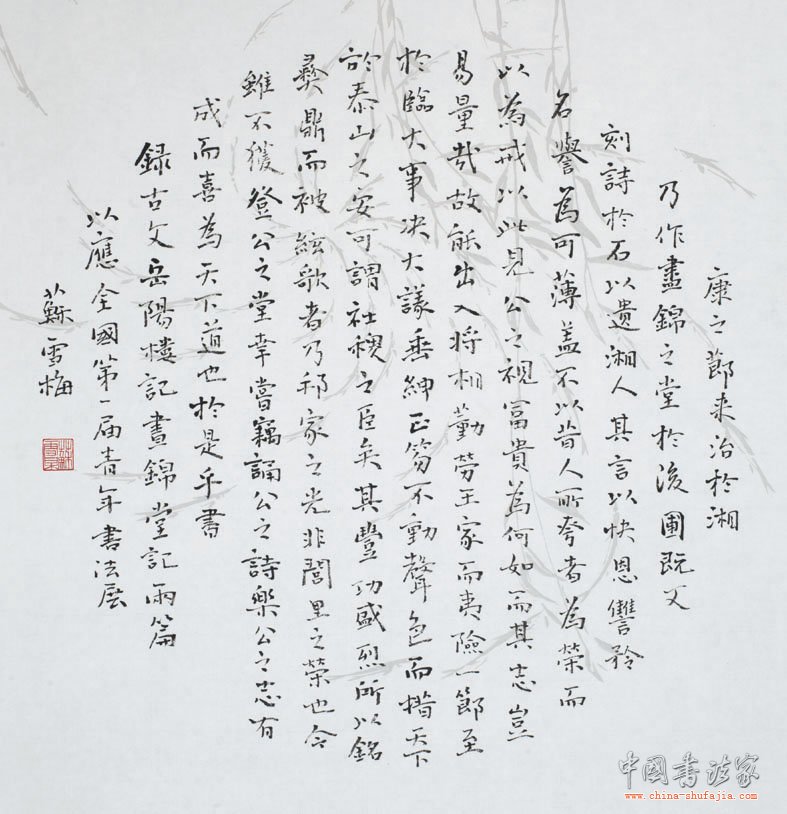 康之節来治於湘
乃作畫錦之堂於後圃既又
刻詩於石以遺湘人其言以快恩讐矜
名譽為可薄盖不以昔人所夸者為榮而
以為戒以此見公之視冨貴為何如而其志豈
易量哉故能出入將相勤勞王家而夷險一節至
於臨大事决大議垂紳正笏不動聲色而措天下
於泰山之安可謂社稷之臣矣其豐功盛烈所以銘
彝鼎而被絃歌者乃邦家之光非閭里之榮也余
雖不獲登公之堂幸嘗竊誦公之詩樂公之志有
成而喜為天下道也於是乎書
録古文岳陽樓記晝錦堂記兩篇
以應全國第一届青年書法展
蘇雪梅
中國書法家
www.china-shufajia.com